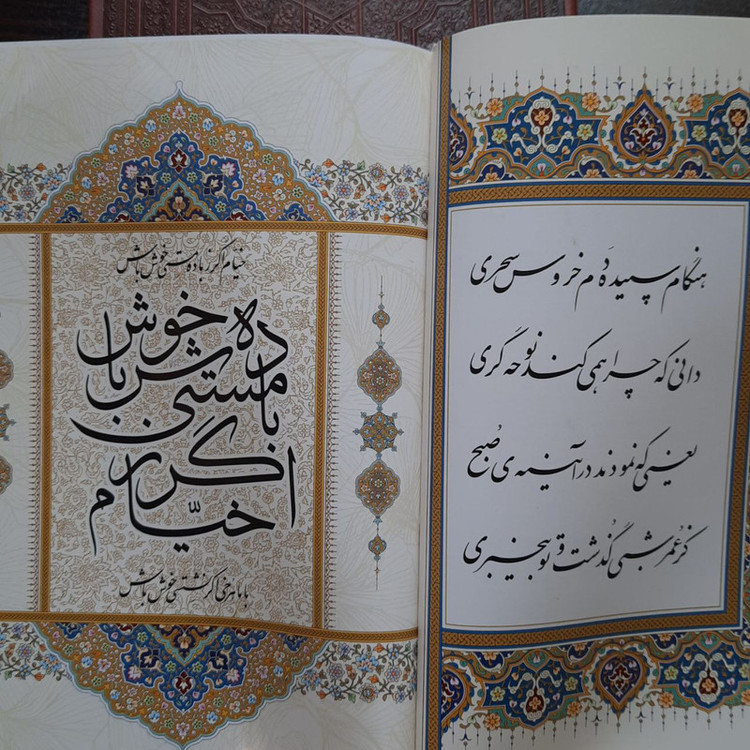 هنگام سپیده دم خروس سحری
دانی که چرا همی کند نوحه گری
یعنی که نمودند در آئینه‌ی صبح
کز عُمر شبی گُذشت و تو بیخبری
خیام اگر ز باده مستی خوش باش
خیّام اگر ز باده مستی خوش باش
با ماهرخی اگر نشستی خوش باش